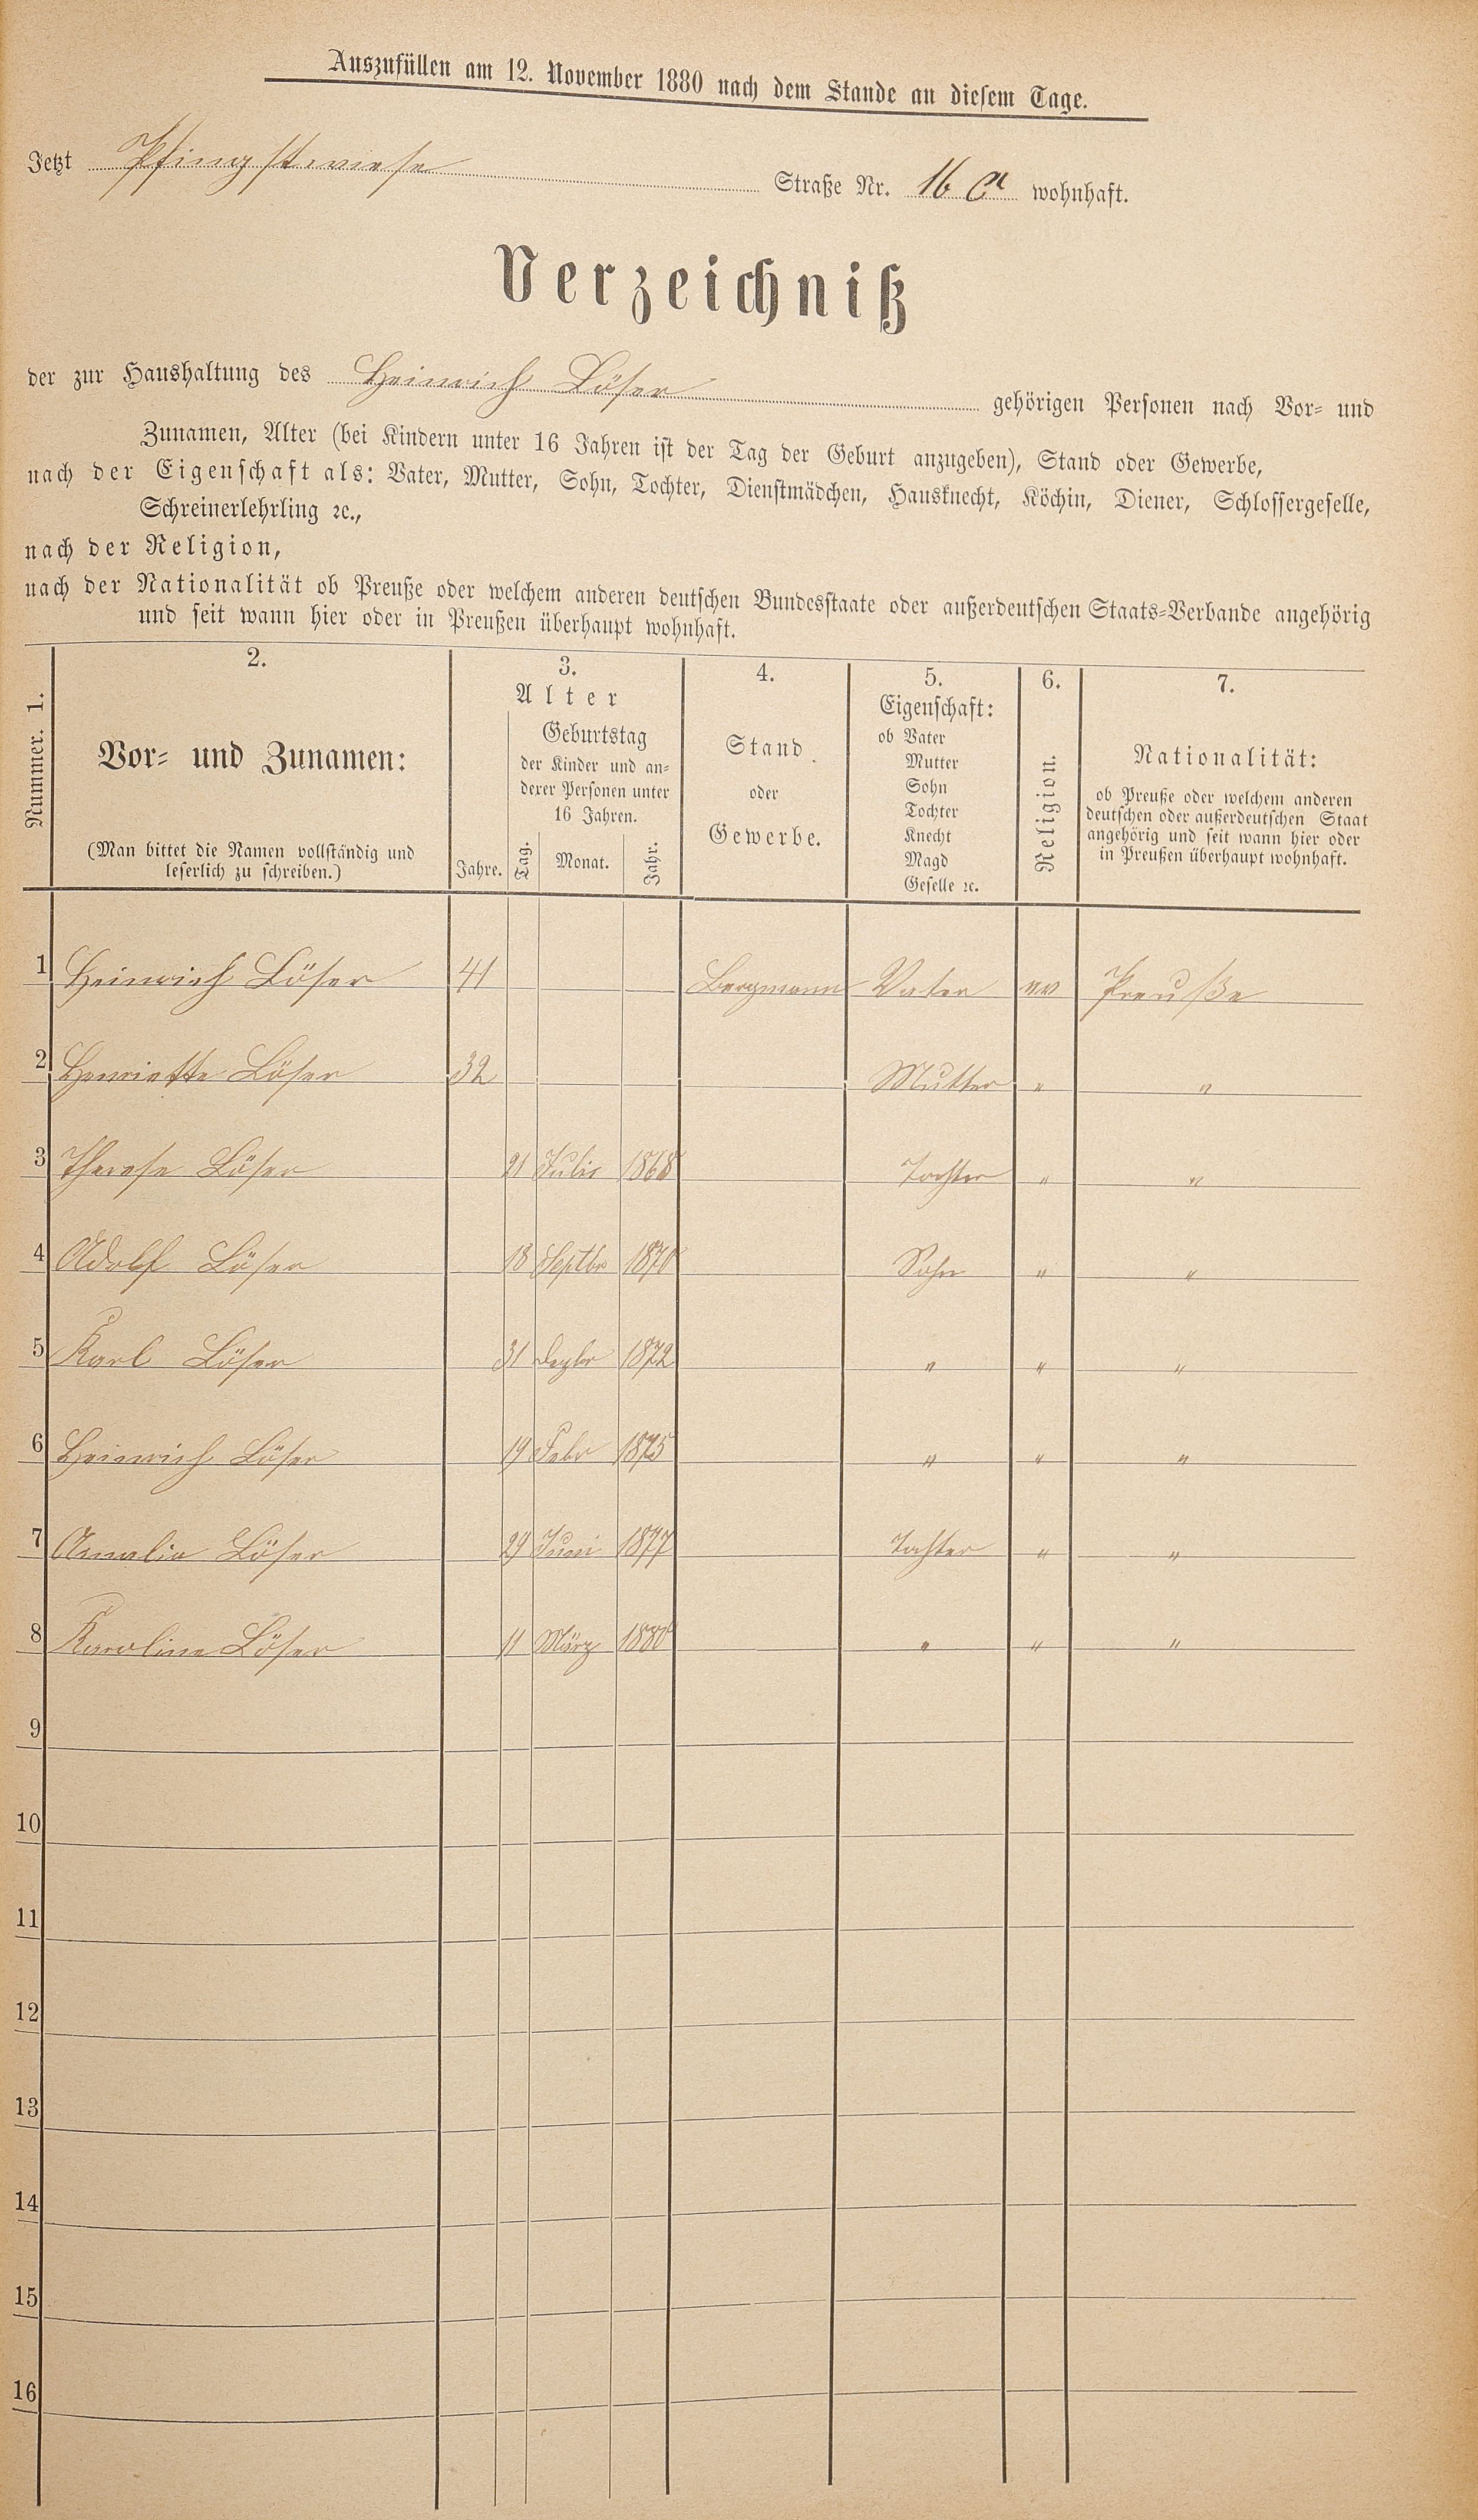 Auszufüllen am 12. November 1880 nach dem Stande an diesem Tage.
Jetzt Pfingstwiese Straße Nr. 16 a wohnhaft.
Verzeichniß
der zur Haushaltung des Heinrich Löser gehörigen Personen nach Vor- und
Zunamen, Alter (bei Kindern unter 16 Jahren ist der Tag der Geburt anzugeben), Stand oder Gewerbe,
nach der Eigenschaft als: Vater, Mutter, Sohn, Tochter, Dienstmädchen, Hausknecht, Köchin, Diener, Schlossergeselle,
Schreinerlehrling ꝛc.,
nach der Religion,
nach der Nationalität ob Preuße oder welchem anderen deutschen Bundesstaate oder außerdeutschen Staats-Verbande angehörig
und seit wann hier oder in Preußen überhaupt wohnhaft.
Nummer. 1.
2.
Vor- und Zunamen:
(Man bittet die Namen vollständig und
leserlich zu schreiben.)
3.
Alter
Jahre.
Geburtstag
der Kinder und an-
derer Personen unter
16 Jahren.
Tag. Monat. Jahr.
4.
Stand
oder
Gewerbe.
5.
Eigenschaft:
ob Vater
Mutter
Sohn
Tochter
Knecht
Magd
Geselle ꝛc.
6.
Religion.
7.
Nationalität:
ob Preuße oder welchem anderen
deutschen oder außerdeutschen Staat
angehörig und seit wann hier oder
in Preußen überhaupt wohnhaft.
1 Heinrich Löser 41 Bergmann Vater ev Preuße
2 Henriette Löser 32 Mutter " "
3 Therese Löser 21 Julis 1868 Tochter " "
4 Adolf Löser 18 Septbr 1870 Sohn " "
5 Karl Löser 31 Dezbr 1872 " " "
6 Heinrich Löser 19 Febr 1875 " " "
7 Amalie Löser 29 Juni 1877 Tochter " "
8 Karoline Löser 11 März 1880 " " "
9
10
11
12
13
14
15
16